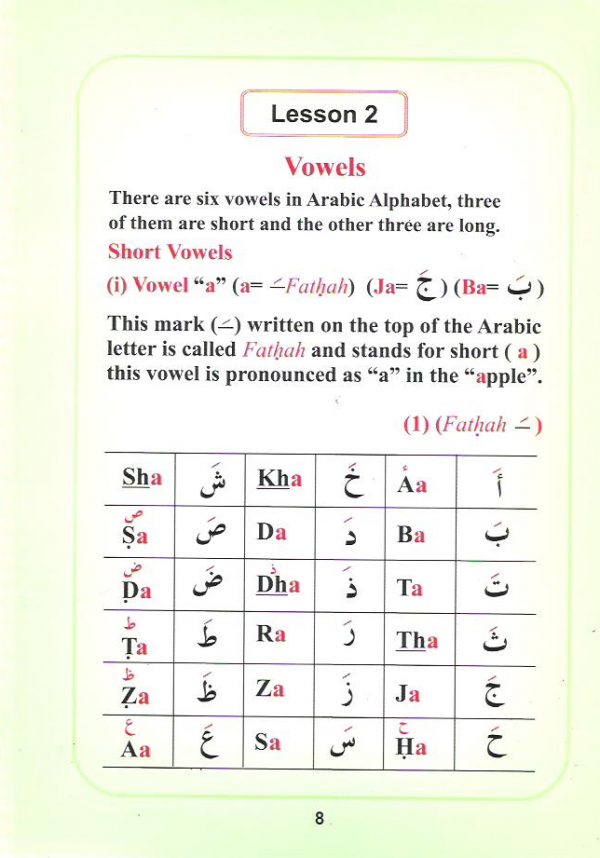 Lesson 2
Vowels
There are six vowels in Arabic Alphabet, three
of them are short and the other three are long.
Short Vowels
(i) Vowel “a” (a= ـَ Fatḥah) (Ja= جَ ) (Ba= بَ )
This mark (ـَ) written on the top of the Arabic
letter is called Fatḥah and stands for short ( a )
this vowel is pronounced as “a” in the “apple”.
(1) (Fatḥah ـَ )
Sha شَ Kha خَ Åa أَ
ص
Ṣa صَ Da دَ Ba بَ
ض ذ
Ḍa ضَ Dha ذَ Ta تَ
ط
Ṭa طَ Ra رَ Tha ثَ
ظ
Ẓa ظَ Za زَ Ja جَ
ع ح
Aa عَ Sa سَ Ḥa حَ
8